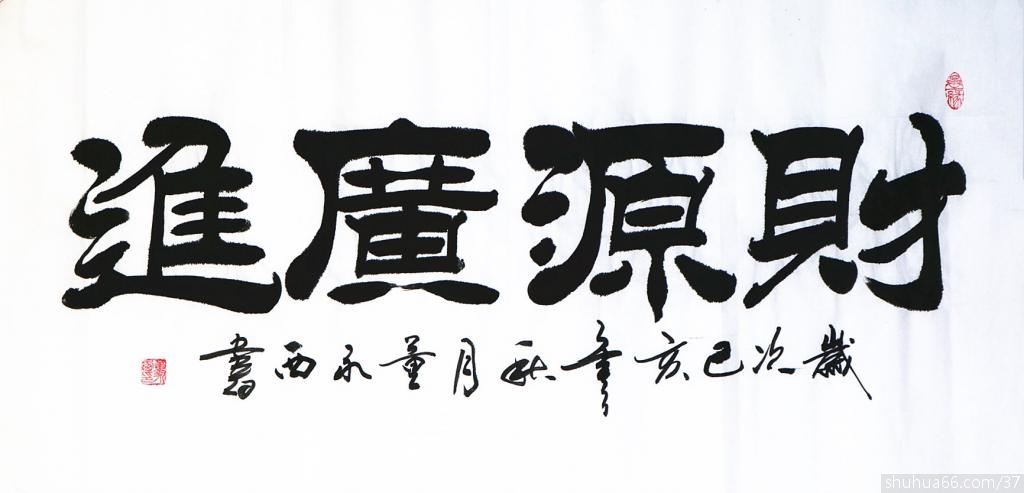 財源廣進
歲次己亥年秋月董永西書
shuhua66.com/37